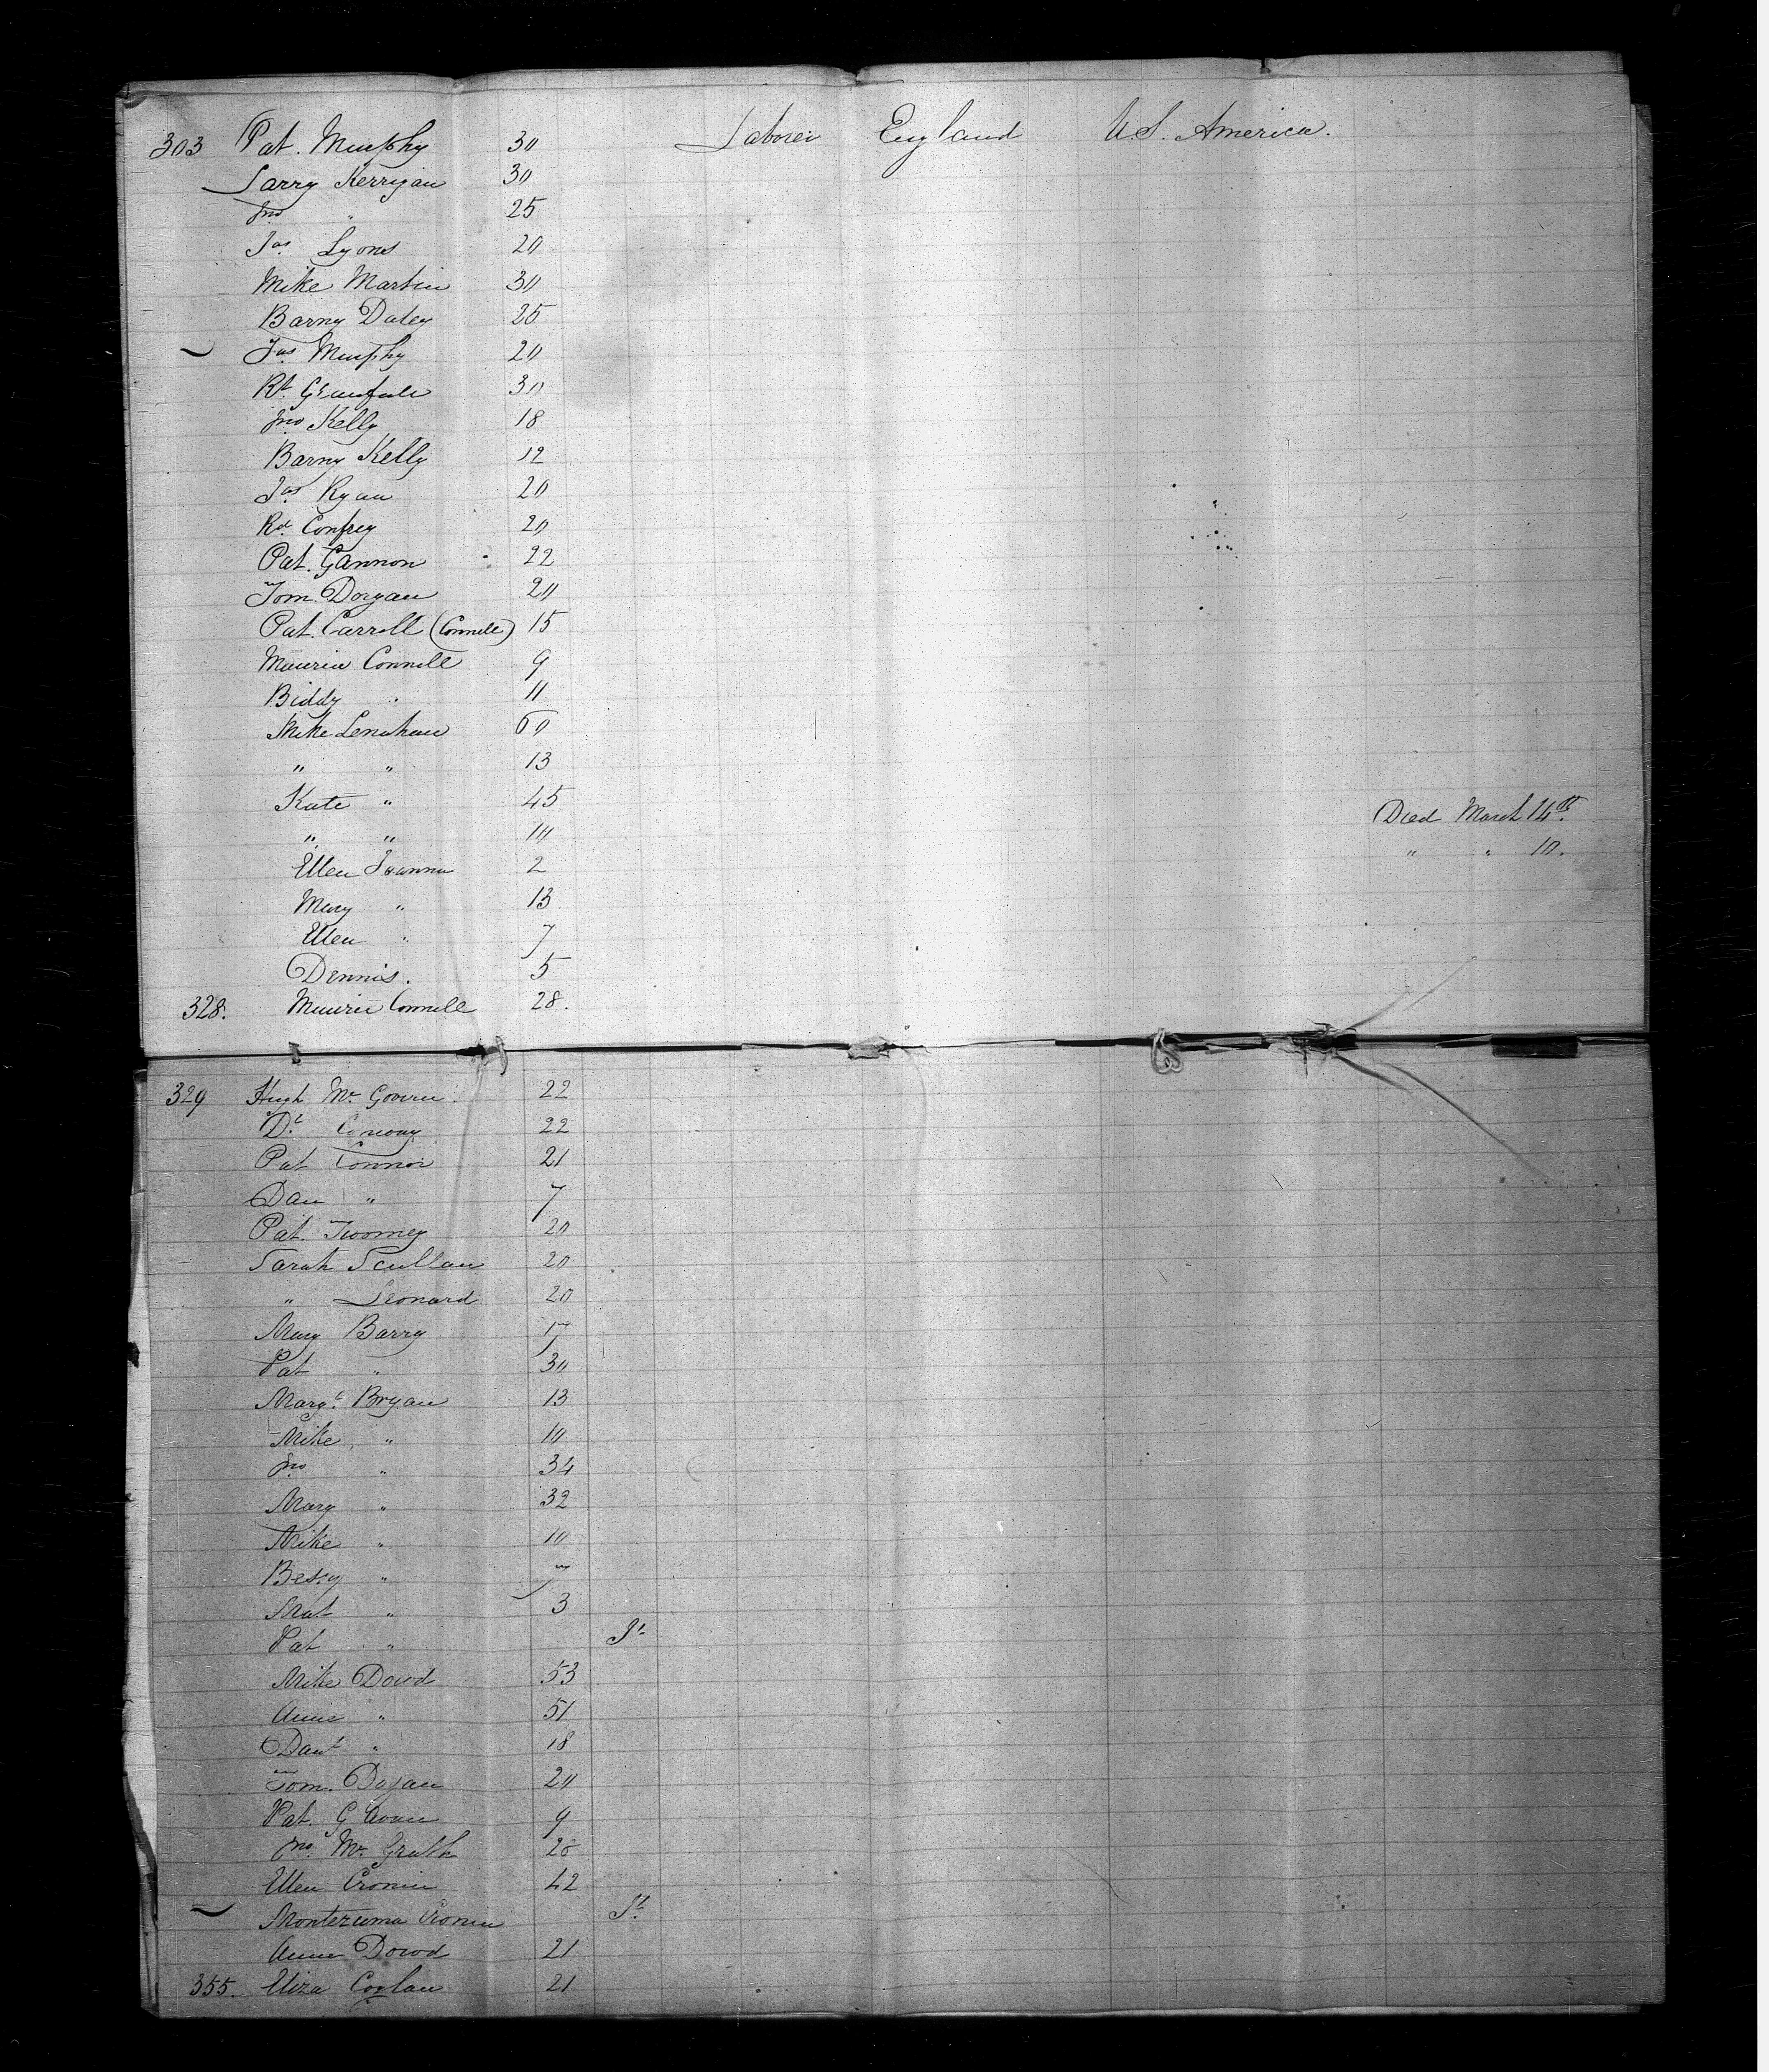 303 Pat. Murphy 30 Laborer England U.S. America.
Larry Kerrigan 30
Jno " 25
Jas Lyons 20
Mike Martin 30
Barny Daley 25
Jas Murphy 20
Rt 30
Jno Kelly 18
Barny Kelly 12
Jas Ryan 20
Rd Confrey 20
Pat. Gannon 22
Tom. Dorgan 20
Pat. Carroll (Connell) 15
Maurice Connell 9
Biddy " 11
Mike Lenahan 60
" " 13
Kate " 45 Died March 14th.
" " 10 " " 10.
Ellen Joanna 2
Mary " 13
Ellen " 7
Dennis. 5
328. Maurice Connell 28.
329 Hugh Mc Govern 22
Dl Conway 22
Pat Connor 21
Dan " 7
Pat. Twomey 20
Sarah Scullan 20
" Leonard 20
Mary Barry
Pat " 30
Margt. Bryan 13
Mike " 10
Jno " 34
Mary " 32
Mike " 10
Bessy " 7
Mat " 3
Pat "
Mike Dowd 53
Anne " 51
Danl " 18
Tom. Dogan 20
Pat. 9
Jno. Mc Grath
Ellen Cronin 42
Montezuma Cronin
Anne Dowd 21
355. Eliza Coglan 21